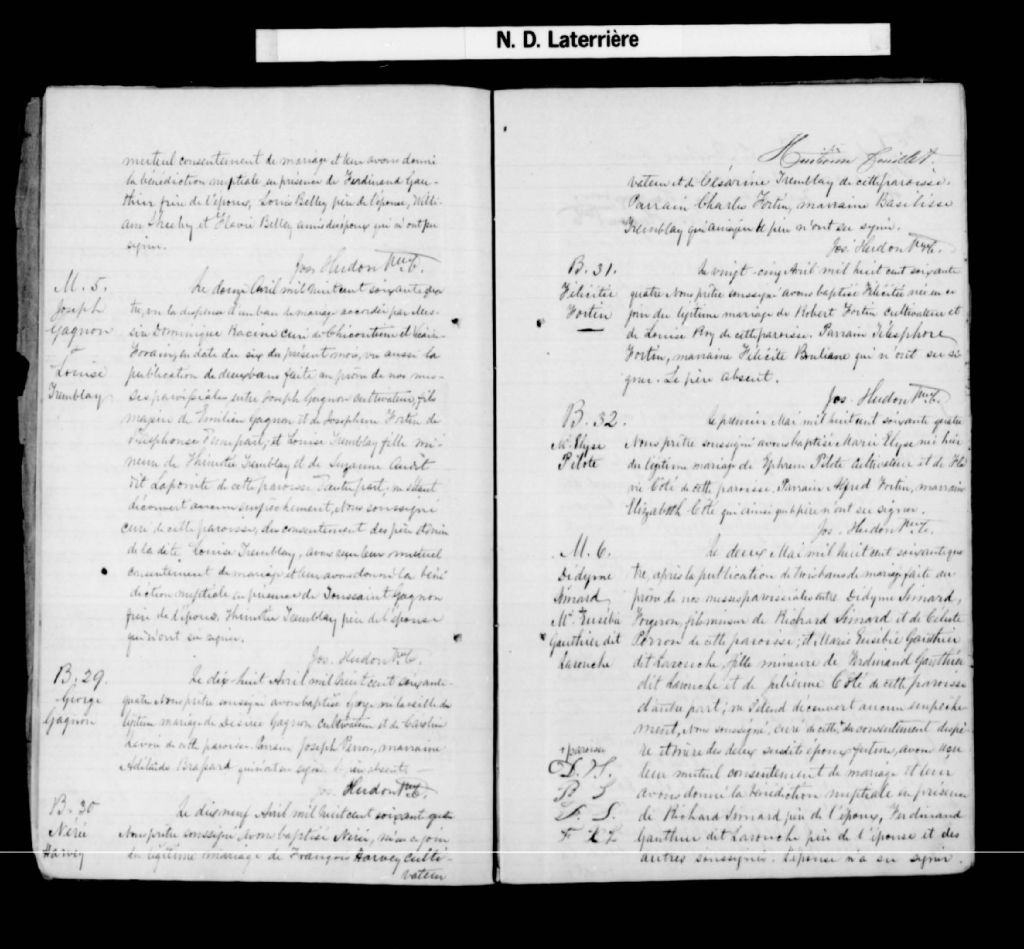 N. D. Laterrière
mutuel consentement de mariage et leur avons donné
la bénédiction nuptiale en présence de Ferdinand Gau-
thier père de l'époux, Louis Belley père de l'épouse, Willi-
am Sheehy et Flavie Belley amis des époux qui n'ont pu
signer.
Jos. Hudon Ptre C.
M. 5.
Joseph
Gagnon
et
Louise
Tremblay
Le douze Avril mil huit cent soixante qua
tre, vu la dispense d'un ban de mariage accordée par Mes-
sire Dominique Racine curé de Chicoutimi et Vicaire
Forain, en date du six du présent mois, vu aussi la
publication de deux bans faite au prône de nos mes-
ses paroissiales entre Joseph Gagnon cultivateur, fils
majeur de Emilien Gagnon et de Josephine Fortin de
d'une part; et Louise Tremblay fille mi-
neure de Thimothé Tremblay et de Suzanne Audet
dit Lapointe de cette paroisse d'autre part; ne s'étant
découvert aucun empêchement, Nous soussigné
curé de cette paroisse, du consentement des père et mère
de la dite Louise Tremblay, avons reçu leur mutuel
consentement de mariage et leur avons donné la béné
diction nuptiale en présence de Toussaint Gagnon
père de l'époux, Thimothé Tremblay père de l'épouse
qui n'ont su signer.
Jos. Hudon Ptre C.
B. 29.
George
Gagnon
Le dix-huit Avril mil huit cent soixante-
quatre Nous prêtre soussigné avons baptisé George né la veille du
légitime mariage de Desiré Gagnon cultivateur et de Caroline
de cette paroisse. Parrain Joseph Perron, marraine
Adélaïde Brassard qui n'ont su signer. Le père absent.
Jos. Hudon Ptre C.
B. 30
Nérée
Harvey
Le dix neuf Avril mil huit cent soixante quatre
Nous prêtre soussigné, avons baptisé Nérée, né en ce jour
du légitime mariage de François Harvey culti-
vateur
Huitième feuillet.
vateur et de Césarine Tremblay de cette paroisse.
Parrain Charles Fortin, marraine Basilisse
Tremblay qui ainsi que le père n'ont su signer.
Jos. Hudon Ptre C.
B. 31.
Félicitée
Fortin
Le vingt-cinq Avril mil huit cent soixante
quatre Nous prêtre soussigné avons baptisé Félicitée née en ce
jour du légitime mariage de Robert Fortin cultivateur et
de Louise Roy de cette paroisse. Parrain Télesphore
Fortin, marraine Félicité Bouliane qui n'ont su si-
gner. Le père absent.
Jos. Hudon Ptre C.
B. 32.
Me. Elyse
Pilote
Le premier Mai mil huit cent soixante quatre
Nous prêtre soussigné avons baptisé Marie Elyse née hier
du légitime mariage de Ephrem Pilote cultivateur et de Fla
vie Coté de cette paroisse. Parrain Alfred Fortin, marraine
Elizabeth Coté qui ainsi que le père n'ont su signer.
Jos. Hudon Ptre C.
M. 6.
Didyme
Simard
Me. Eusébie
Gauthier dit
Larouche
Le deux Mai mil huit cent soixante qua
tre, après la publication de trois bans de mariage faite au
prône de nos messes paroissiales entre Didyme Simard,
Forgeron, fils mineur de Richard Simard et de Céleste
Perron de cette paroisse; et Marie Eusébie Gauthier
dit Larouche, fille mineure de Ferdinand Gauthier
dit Larouche et de Julienne Coté de cette paroisse
d'autre part; ne s'étant découvert aucun empêche
ment, Nous soussigné, curé de cette + du consentement des pè-
re et mère des deux susdits époux futurs, avons reçu
leur mutuel consentement de mariage et leur
avons donné la bénédiction nuptiale en présence
de Richard Simard père de l'époux, Ferdinand
Gauthier dit Larouche père de l'épouse et des
autres soussignés. L'épouse n'a su signer.
+ paroisse
D. S.
B S
F. L.
F G L